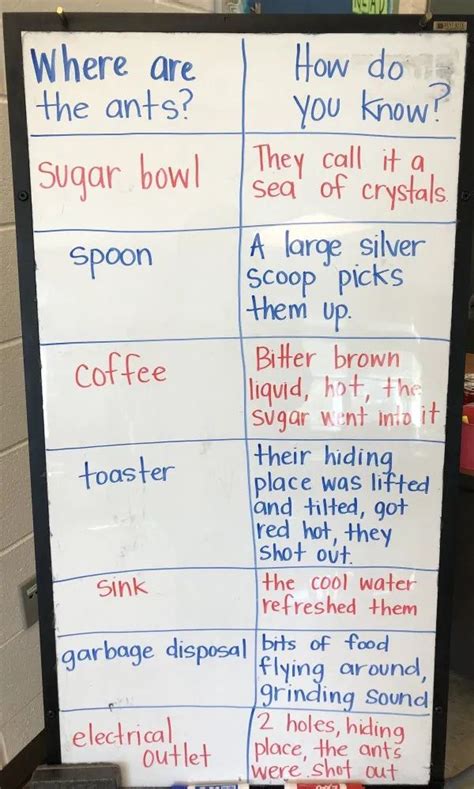 Where are
the ants?
How do
you know?
sugar bowl
They call it a
sea of crystals.
spoon
A large silver
scoop picks
them up.
coffee
Bitter brown
liquid, hot, the
sugar went into it
toaster
their hiding
place was lifted
and tilted, got
red hot, they
shot out.
sink
the cool water
refreshed them
garbage disposal
bits of food
flying around,
grinding sound
electrical
outlet
2 holes, hiding
place, the ants
were shot out